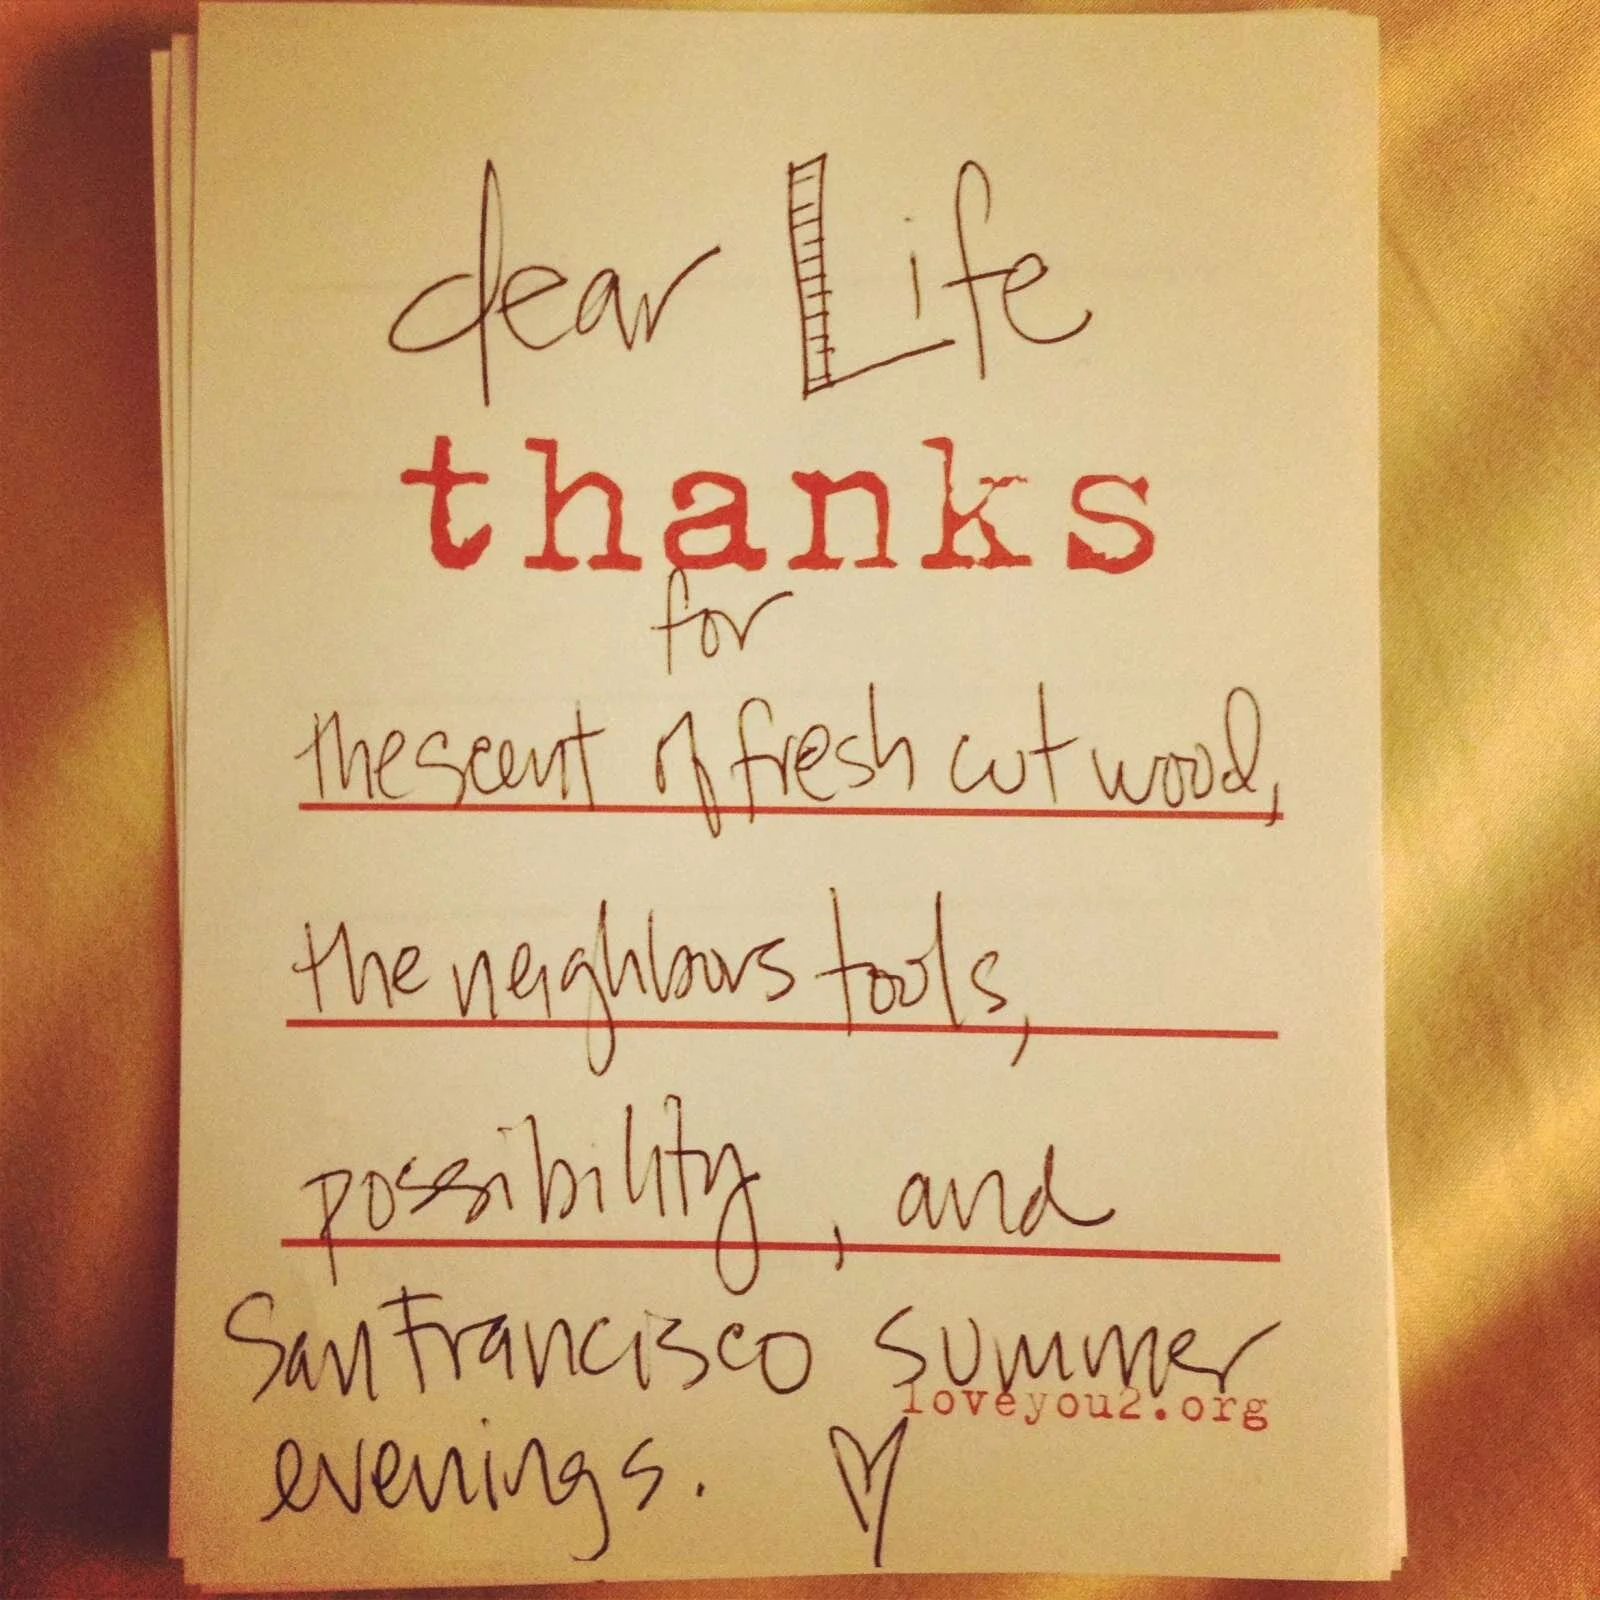 dear Life
thanks
for
the scent of fresh cut wood,
the neighbors tools,
possibility, and
San Francisco summer
loveyou2.org
evenings.